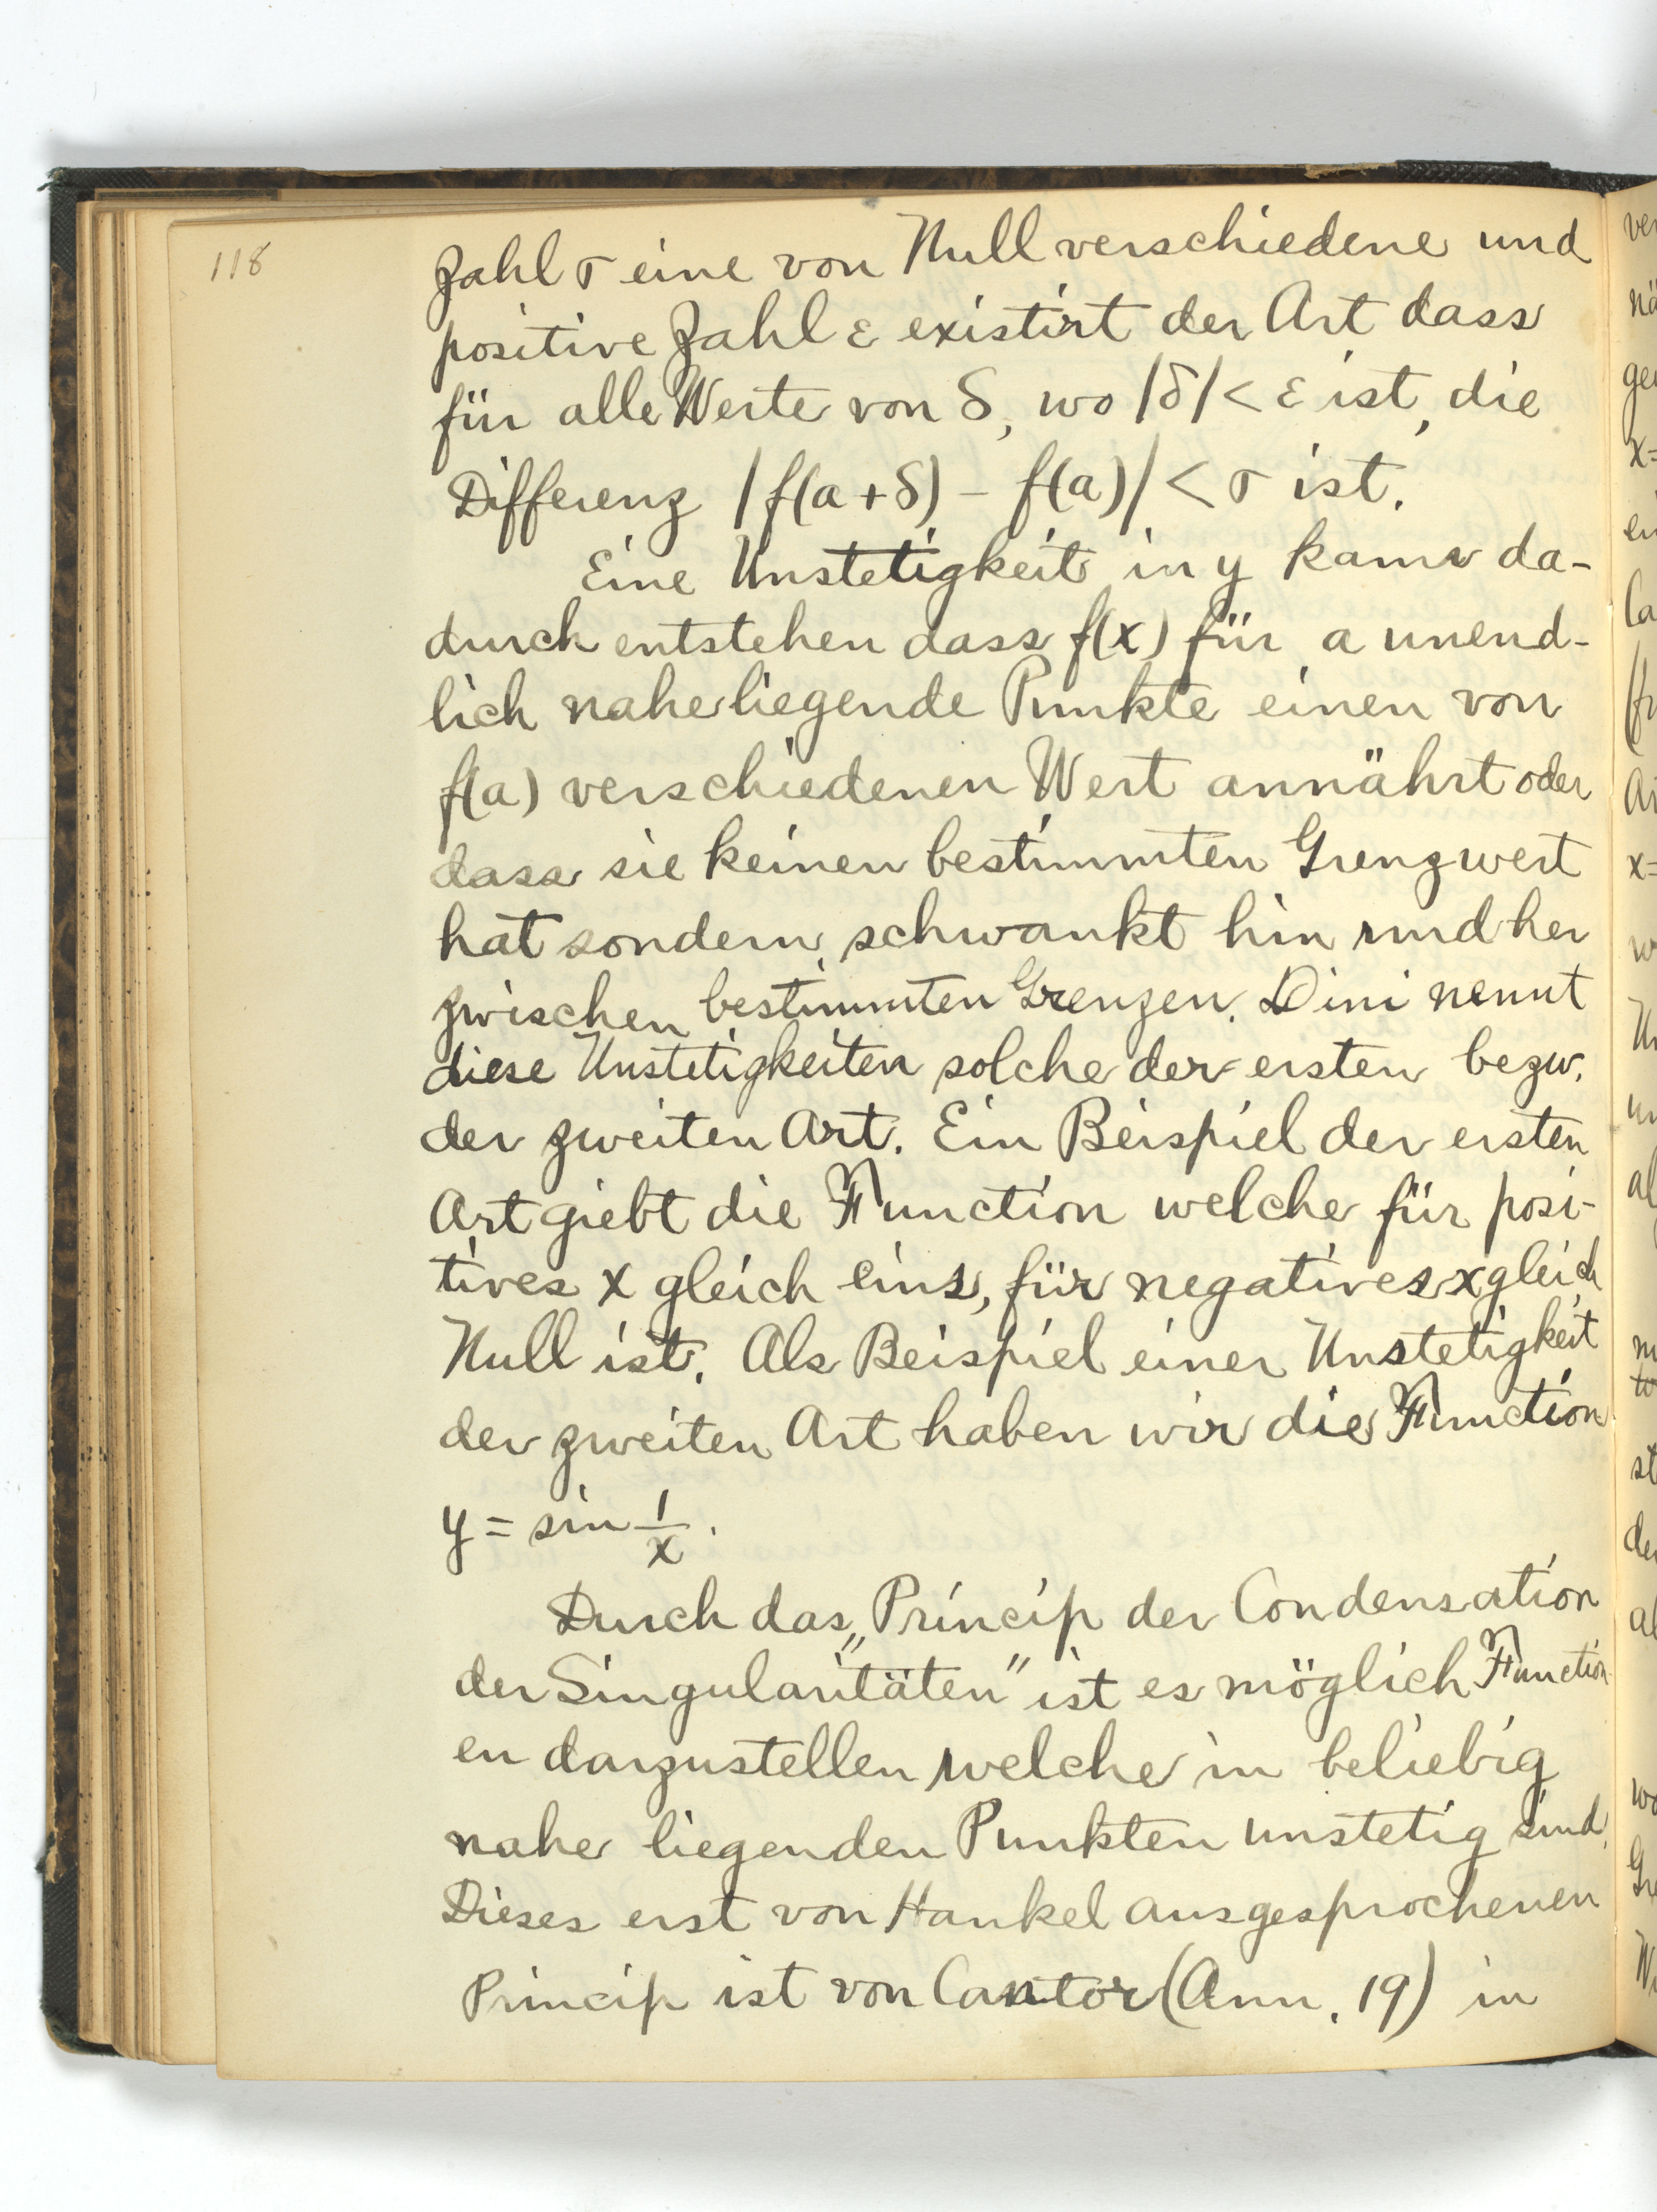 118
Zahl σ eine von Null verschiedene und
positive Zahl ε existirt der Art dass
für alle Werte von δ, wo |δ| < ε ist, die
Differenz |f(a+δ) – f(a)| < σ ist.
Eine Unstetigkeit in y kann da-
durch entstehen dass f(x) für a unend-
lich naheliegende Punkte einen von
f(a) verschiedenen Wert annährt oder
dass sie keinen bestimmten Grenzwert
hat sondern schwankt hin und her
zwischen bestimmten Grenzen. Dini nennt
diese Unstetigkeiten solche der ersten bezw.
der zweiten Art. Ein Beispiel der ersten
Art giebt die Function welche für posi-
tives x gleich eins, für negatives x gleich
Null ist. Als Beispiel einer Unstetigkeit
der zweiten Art haben wir die Function
y = sin 1/x.
Durch das „Princip der Condensation
der Singularitäten" ist es möglich Function-
en darzustellen welche in beliebig
nahe liegenden Punkten unstetig sind.
Dieses erst von Hankel ausgesprochenen
Princip ist von Cantor (Ann. 19) in